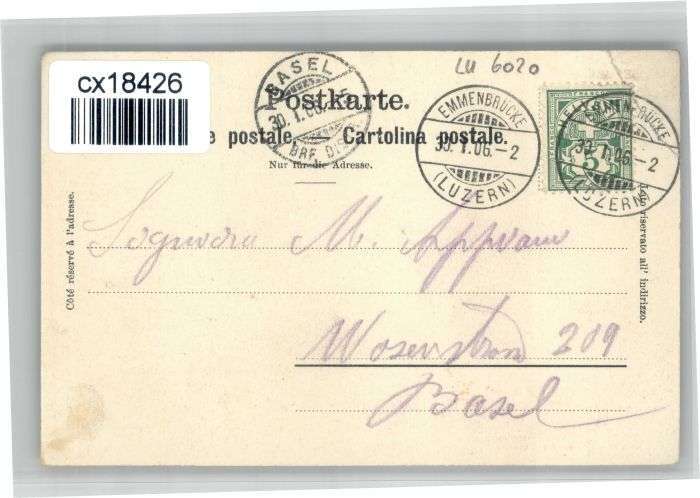 cx18426
LU 6020
BASEL
30.1.06
BRF. DIS
Postkarte.
postale. Cartolina postale.
Nur für die Adresse.
EMMENBRÜCKE
30.1.06.-2
(LUZERN)
EMMENBRÜCKE
30.1.06.-2
(LUZERN)
5
Côté réservé à l'adresse.
Lato riservato all' indirizzo.
M.
209
Basel